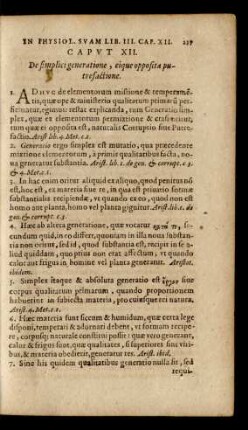 IN PHYSIOL. SVAM LIB. III. CAP. XII. 227
CAPVT XII.
De simplici generatione, eique opposita pu-
trefactione.
1. ADHVC de elementorum mistione & temperamē-
tis, quæ ope & ministerio qualitatum primarū per-
ficiuntur, egimus: restat explicanda, tum Generatio sim-
plex, quæ ex elementorum permixtione & affectione,
tum quæ ei opposita est, naturalis Corruptio siue Putre-
factio. Arist. lib. 4. Met. c. 1.
2. Generatio ergo simplex est mutatio, qua præcedente
mixtione elementorum, à primis qualitatibus facta, no-
ua generatur substantia. Arist. lib. 1. de gen. & corrupt. c. 3.
& 4. Met. c. 1.
3. In hac enim oritur aliquid ex aliquo, quod penitus nō
est, hoc est, ex materia siue re, in qua est priuatio formæ
substantialis recipiendæ, vt quando ex ouo, quod non est
homo aut planta, homo vel planta gignitur. Arist. lib. 1. de
gen. & corrupt. c. 3.
4. Hæc ab altera generatione, quæ vocatur
cundum quid, in eo differt, quoniam in illa noua substan-
tia non oritur, sed id, quod substantia est, recipit in se a-
liud quiddam, quo prius non erat affectum, vt quando
calor aut frigus in homine vel planta generatur. Aristot.
ibidem.
5. Simplex itaque & absoluta generatio est siue
corpus qualitatum primarum, quando proportionem
habuerint in subiecta materia, pro cuiusque rei natura.
Arist. 4. Met. c. 1.
6. Hæc materia sunt siccum & humidum, quæ certa lege
disponi, temperari & adornari debent, vt formam recipe-
re, corpusque naturale constitui possit: quæ vero generant,
calor & frigus sunt, quæ qualitates, si superiores sint viri-
bus, & materia obediret, generatur res. Arist. ibid.
7. Sine his quidem qualitatibus generatio nulla fit, sed
requi-